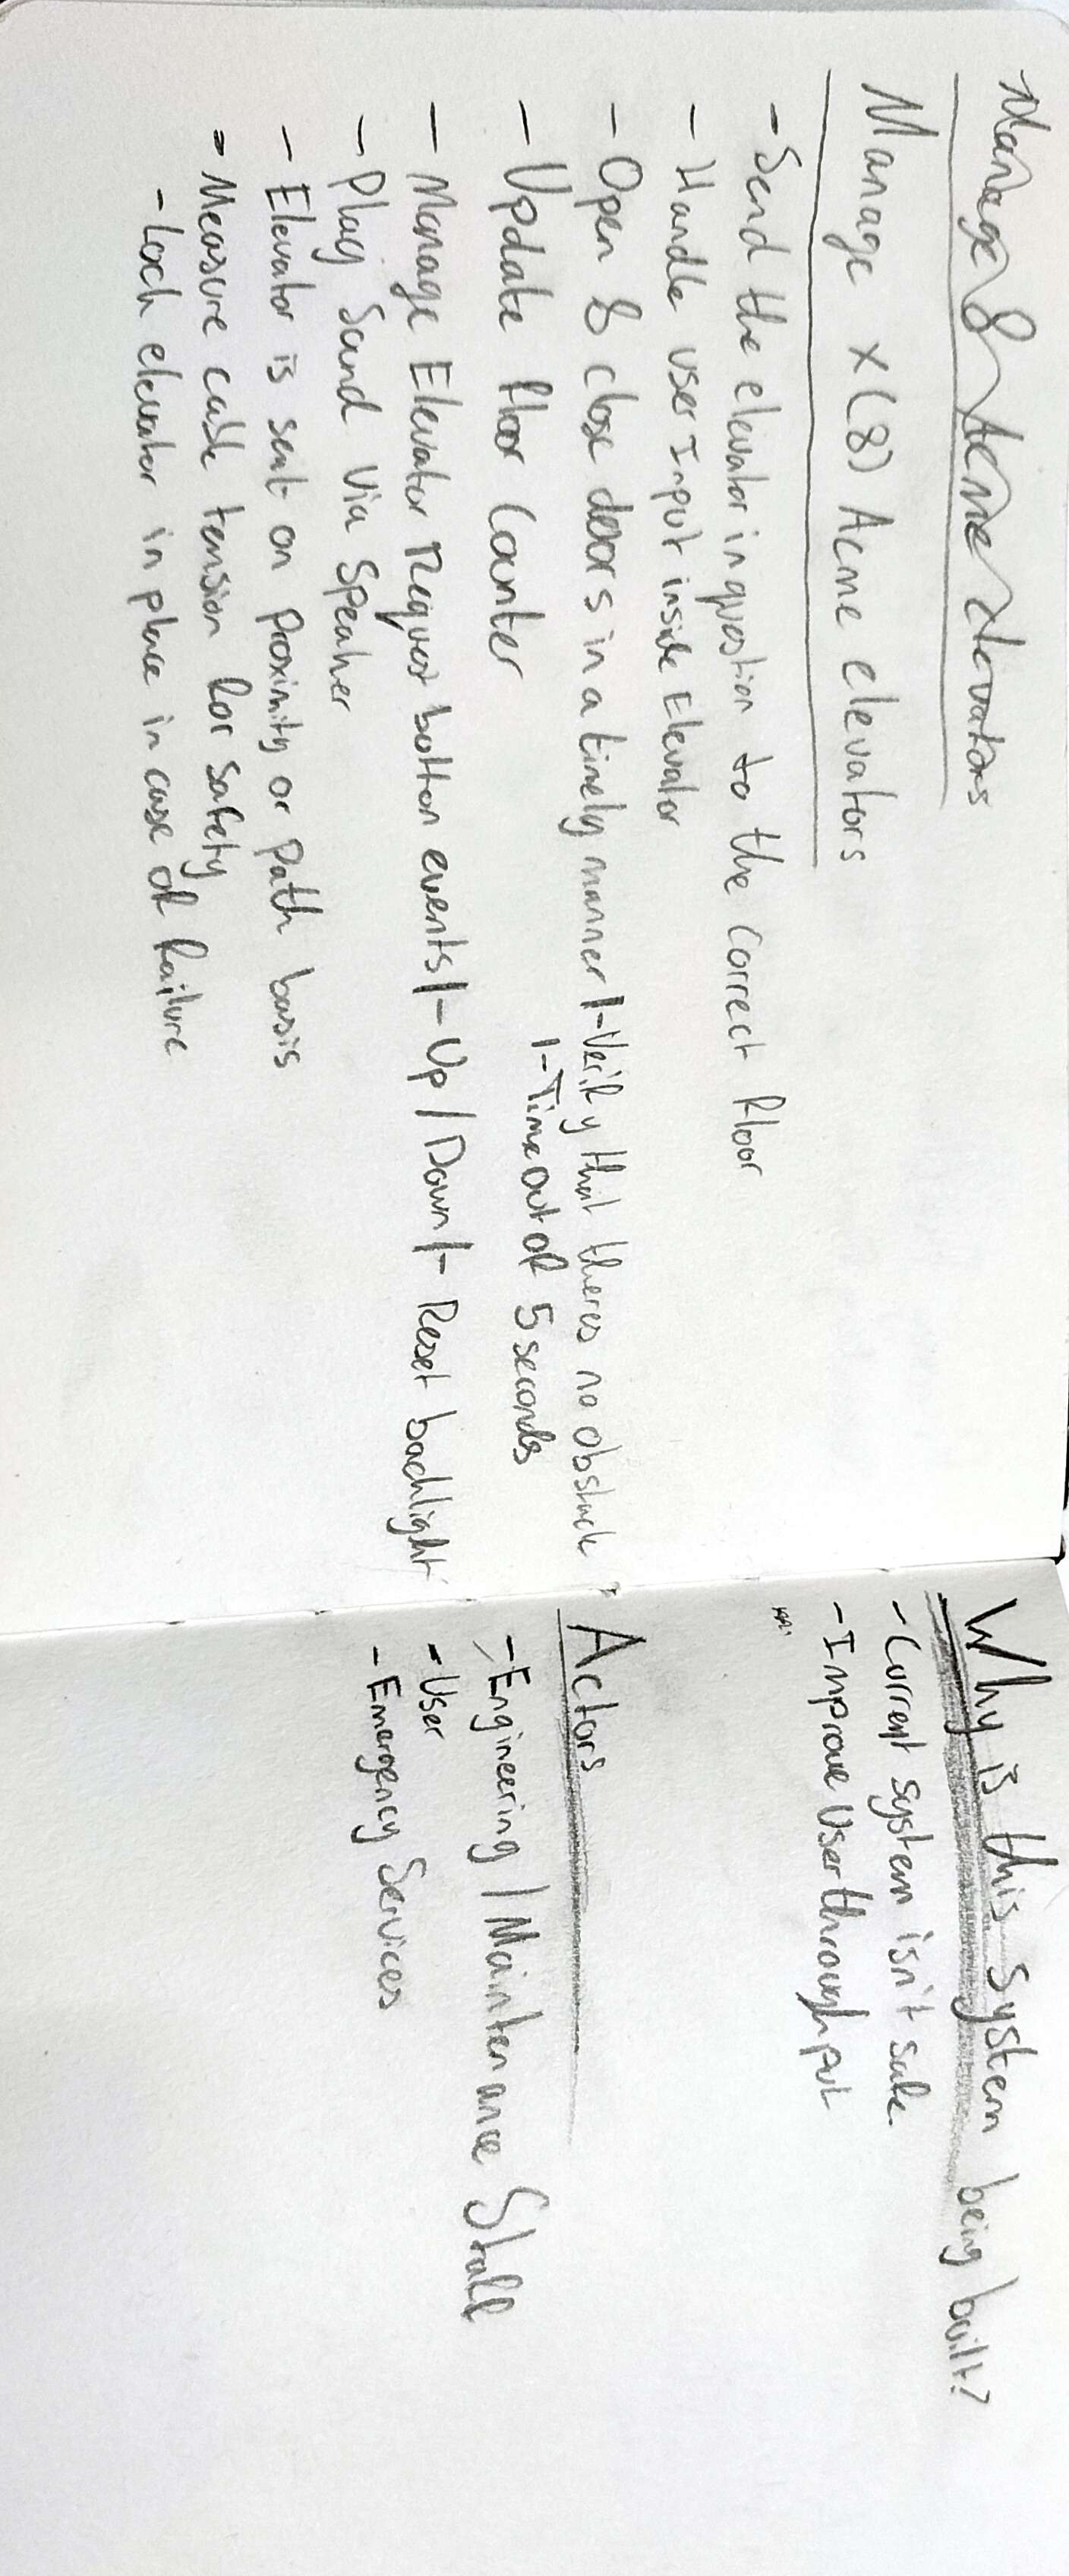 Manage 8 Acme elevators
Manage x(8) Acme elevators
- Send the elevator in question to the correct floor
- Handle user Input inside Elevator
- Open & close doors in a timely manner |- Verify that theres no obstacle
|- Time out of 5 seconds
- Update floor Counter
- Manage Elevator Request button events |- Up / Down |- Reset backlight
- Play Sound Via Speaker
- Elevator is sent on proximity or path basis
- Measure cable tension for safety
- Lock elevator in place in case of failure
Why is this system being built?
- Current system isn't safe.
- Improve User throughput
Actors
- Engineering / Maintenance Staff
- User
- Emergency Services